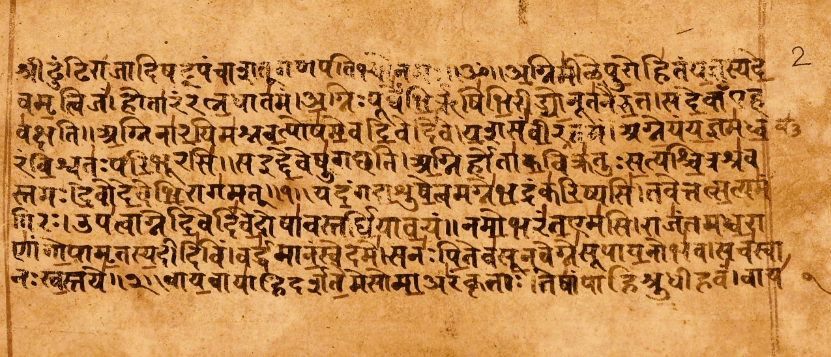 श्रीढुंढिराजादि ॥ॐ॥अग्निमीळेपुरोहितंयज्ञस्यदे 2
वमृत्विजं।होतारंरत्नधातमं।अग्निःपूर्वेभिर्ऋषिभिरीड्योनूतनैरुत।सदेवाँएह
वक्षति॥अग्निनारयिमश्नवत्पोषमेवदिवेदिवे।यशसंवीरवत्तमं।अग्नेयंयज्ञमध्व
रंविश्वतःपरिभूरसि॥सइद्देवेषुगछति।अग्निर्होताकविक्रतुःसत्यश्चित्रश्रव
स्तमः।देवोदेवेभिरागमत्॥१॥यदंगदाशुषेत्वमग्नेभद्रंकरिष्यसि।तवेत्तत्सत्यमं
गिरः।उपत्वाग्नेदिवेदिवेदोषावस्तर्धियावयं॥नमोभरंतएमसि।राजंतमध्वरा
णांगोपामृतस्यदीदिविं।वर्द्धमानंस्वेदमे।सनःपितेवसूनवेग्नेसूपायनोभव।सचस्वा
नःस्वस्तये॥२॥वायवायाहिदर्शतेमेसोमाअरंकृताः।तेषांपाहिश्रुधीहवं।वाय